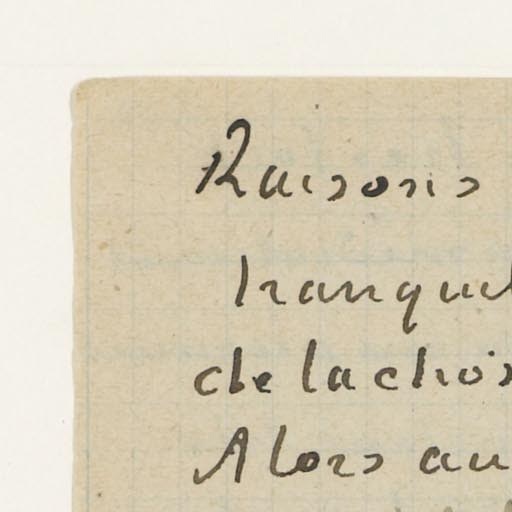 Raisons
tranquil
de la chois
Alors au